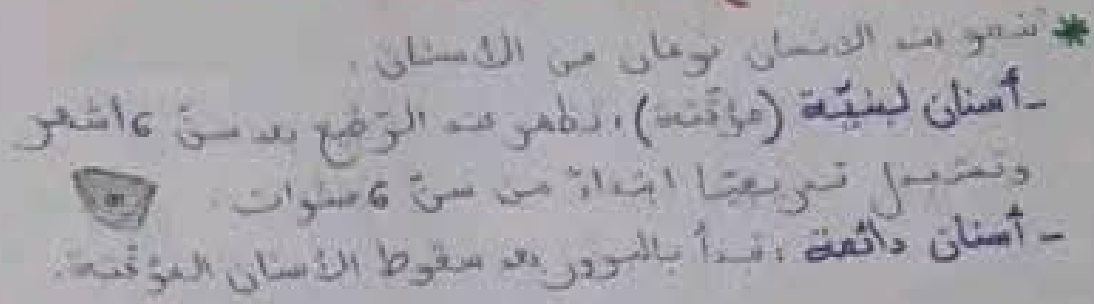 * تنمو عند الإنسان نوعان من الأسنان.
- أسنان لبنيّة (مؤقّتة): تظهر عند الرّضيع بعد سنّ 6 أشهر
وتستبدل تدريجيّا ابتداءً من سنّ 6 سنوات.
- أسنان دائمة: تبدأ بالبروز بعد سقوط الأسنان المؤقّتة.